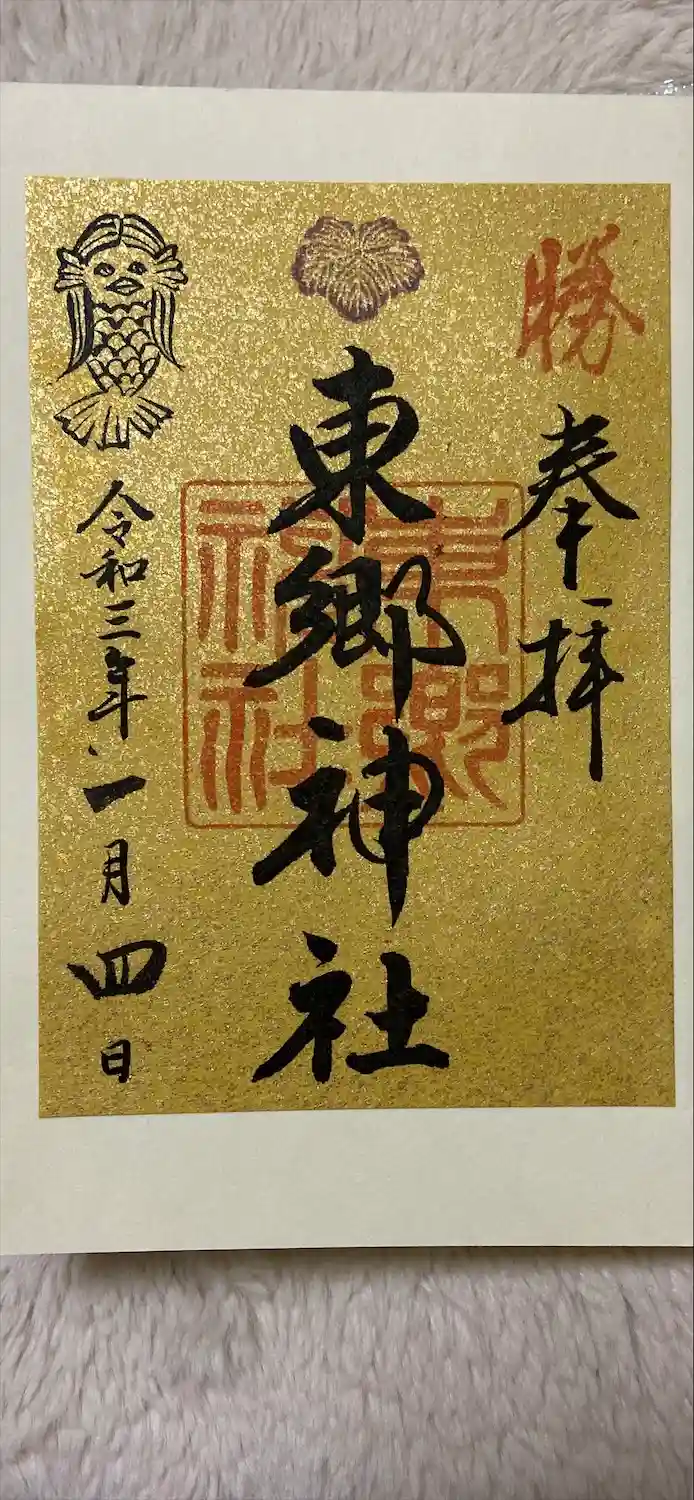 勝
奉拝
東郷神社
東郷神社
令和三年一月四日